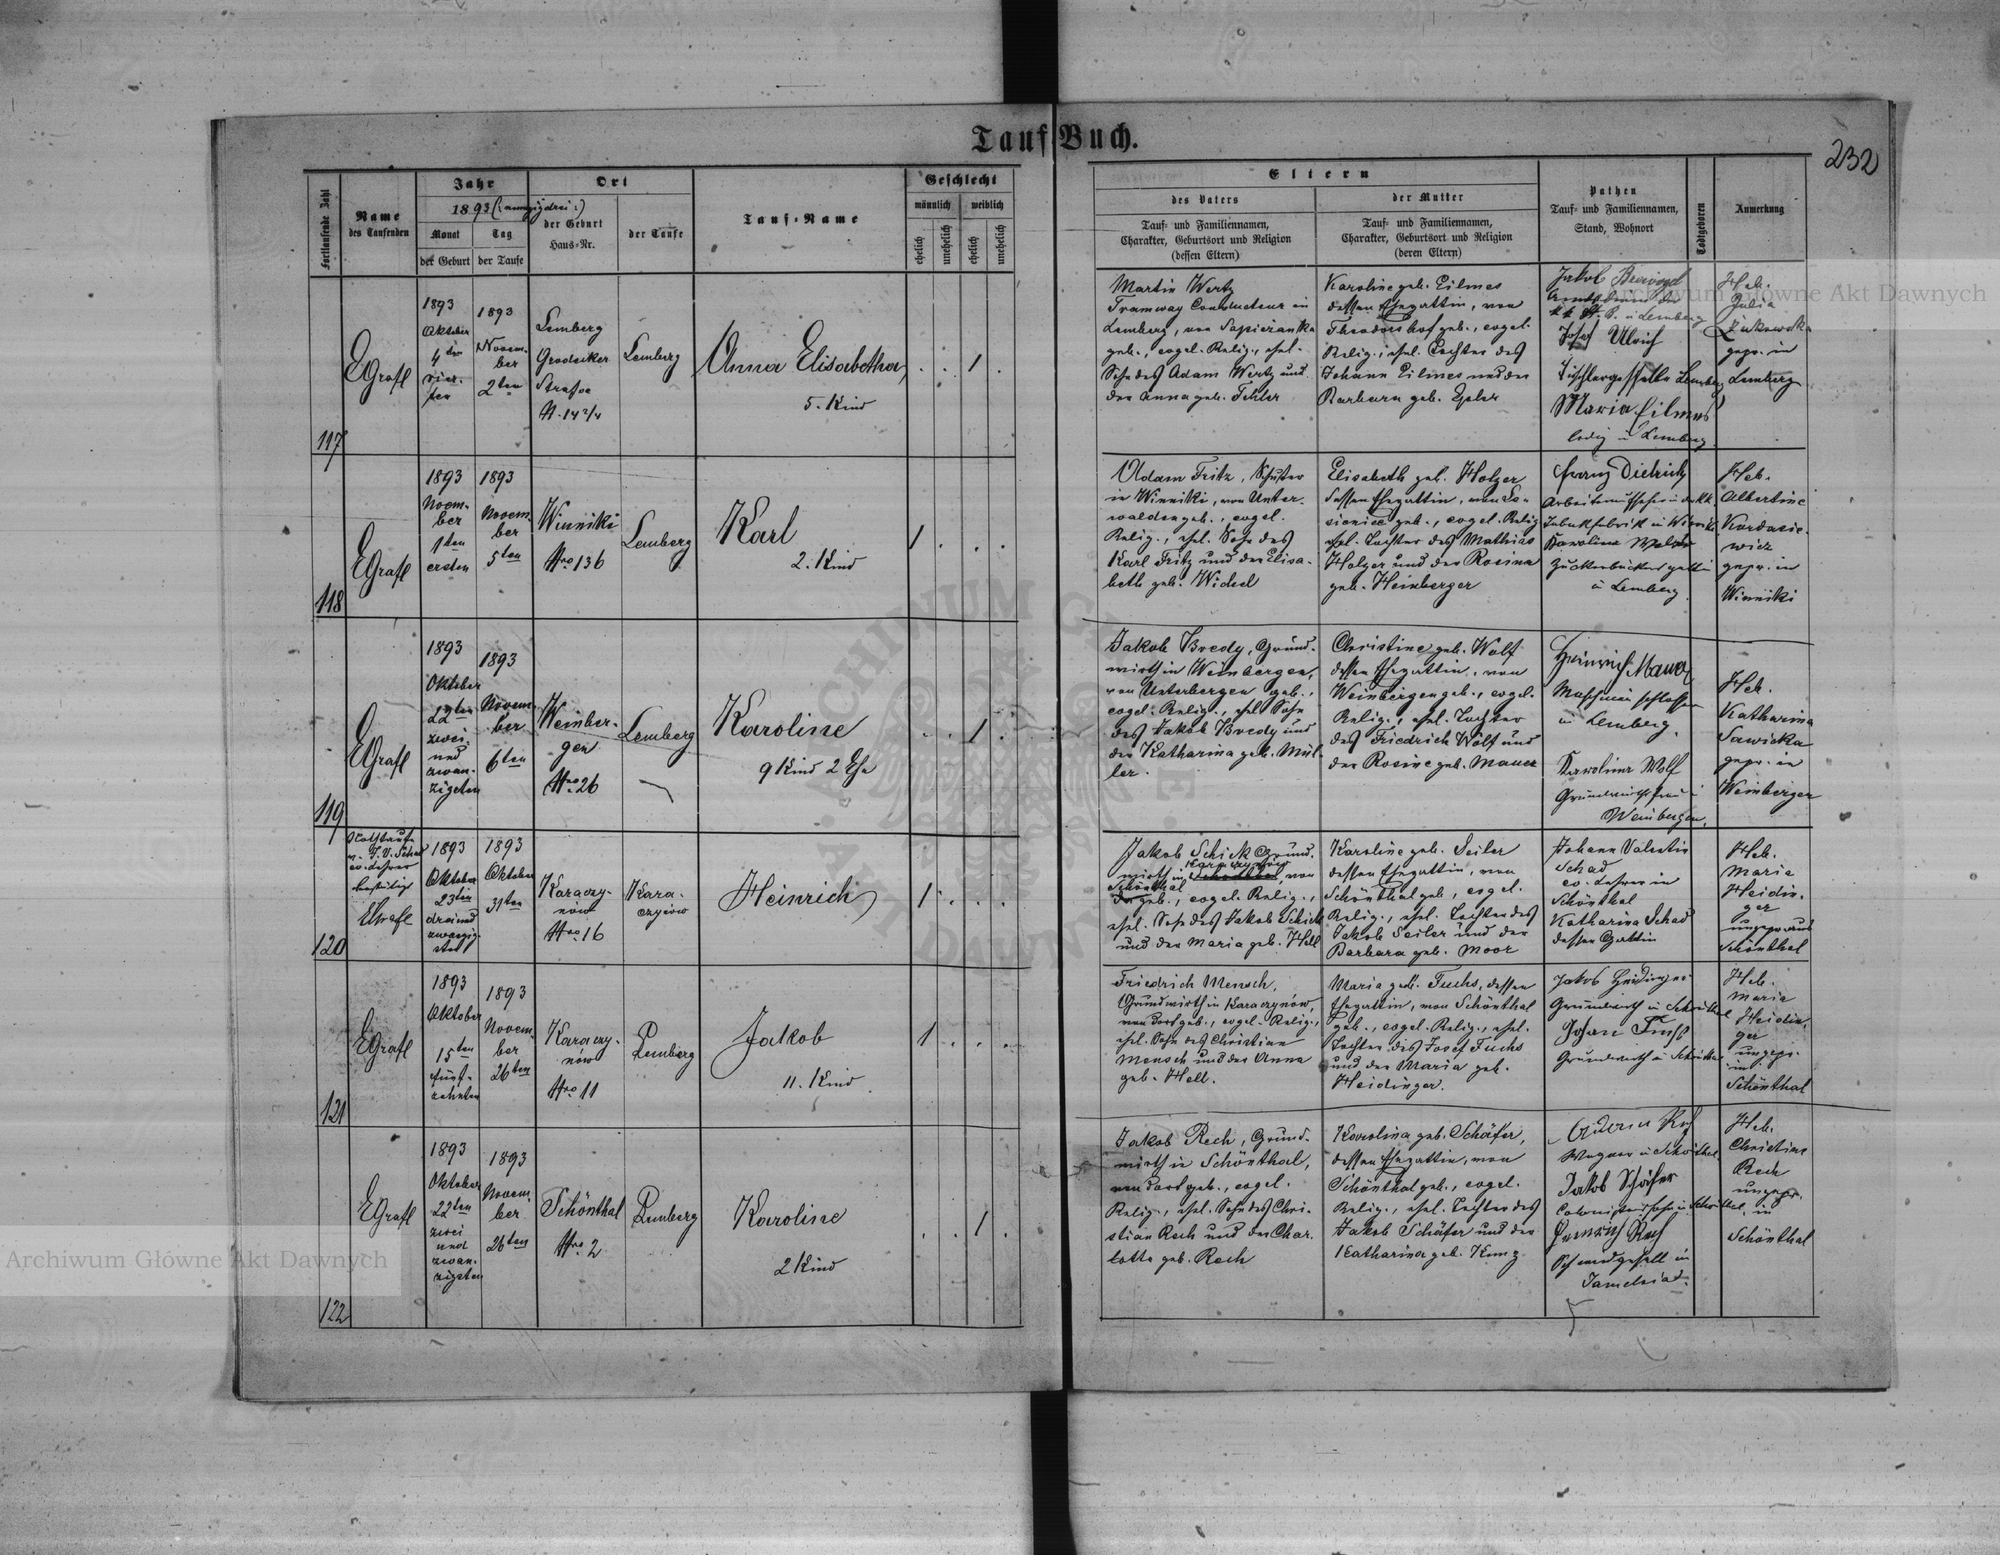 Tauf Buch.
232
Fortlaufende Zahl
Name
des Taufenden
Jahr
1893 (:neunzigdrei:)
Monat
Tag
der Geburt
der Taufe
Ort
der Geburt
Haus-Nr.
der Taufe
Tauf-Name
Geschlecht
männlich
weiblich
ehelich
unehelich
ehelich
unehelich
Eltern
des Vaters
Tauf- und Familiennamen,
Charakter, Geburtsort und Religion
(dessen Eltern)
der Mutter
Tauf- und Familiennamen,
Charakter, Geburtsort und Religion
(deren Eltern)
Pathen
Tauf- und Familiennamen,
Stand, Wohnort
Todtgeboren
Anmerkung
117
EGrafl
1893
Oktober
4ten
vier-
ten
1893
Novem-
ber
2ten
Lemberg
Grodecker
Strasse
N. 14 2/4
Lemberg
Anna Elisabetha
5. Kind
Martin Wertz
Tramway Conducteur in
Lemberg, von Sapiezanka
geb., evgel. Relig., ehel.
Sohn des Adam Wertz und
der Anna geb.
Karoline geb. Cilmes
dessen Ehegattin, von
Theodorshof geb., evgel.
Relig., ehel. Tochter des
Johann Cilmes und der
Barbara geb.
Jakob
in Lemberg
Josef Ulrich
Tischlergeselle Lemberg
Maria Cilmes
ledig in Lemberg
Heb.
Julia
Zukowska
gepr. in
Lemberg
118
EGrafl
1893
Novem-
ber
1ten
ersten
1893
Novem-
ber
5ten
Winniki
Nro 136
Lemberg
Karl
2. Kind
Adam Fritz, Schuster
in Winniki, von Unter-
walden geb., evgel.
Relig., ehel. Sohn des
Karl Fritz und der Elisa-
beth geb. Wided
Elisabeth geb. Holzer
dessen Ehegattin, von
geb., evgel. Relig.
ehel. Tochter des Mathias
Holzer und der Rosina
geb. Heinberger
Franz Dietrich
Arbeiteraufseher in der kk.
Tabakfabrik in Winniki
Karolina
Zuckerbäckersgattin
in Lemberg
Heb.
Albertine
Kordasie-
wicz
gepr. in
Winniki
119
EGrafl
1893
Oktober
22ten
zwei
und
zwan-
zigsten
1893
Novem-
ber
6ten
Weinber-
gen
Nro 26
Lemberg
Karoline
9 Kind 2 Ehe
Jakob Bredy, Grund-
wirth in Weinbergen,
von Unterbergen geb.,
evgel. Relig., ehel. Sohn
des Jakob Bredy und
der Katharina geb. Mül-
ler.
Christine geb. Wolf
dessen Ehegattin, von
Weinbergen geb., evgel.
Relig., ehel. Tochter
des Friedrich Wolf und
der Rosine geb. Mauer
Heinrich Mauer
Maschinenschlosser
in Lemberg.
Karolina Wolf
Grundwirthsfrau
Weinbergen.
Heb.
Katharina
Sawicka
gepr. in
Weinbergen
120
Nothtaufe
v. J. V. Schad
ev. Lehrer
bestätigt
EGrafl
1893
Oktober
23ten
dreiund
zwanzig-
sten
1893
Oktober
31ten
Karaczy-
nów
Nro 16
Kara-
czynów
Heinrich
Jakob Schick Grund-
wirth in Karaczynów, von
Schönthal
geb., evgel. Relig.,
ehel. Sohn des Jakob Schick
und der Maria geb. Hell
Karoline geb. Seiler
dessen Ehegattin, von
Schönthal geb., evgel.
Relig., ehel. Tochter des
Jakob Seiler und der
Barbara geb. Moor
Johann Valentin
Schad
ev. Lehrer in
Schönthal
Katharina Schad
dessen Gattin
Heb.
Maria
Heidin-
ger
ungepr. aus
Schönthal
121
EGrafl
1893
Oktober
15ten
fünf-
zehnten
1893
Novem-
ber
26ten
Karaczy-
nów
Nro 11
Lemberg
Jakob
11. Kind
Friedrich Mensch,
Grundwirth in Karaczynów,
von dort geb., evgel. Relig.,
ehel. Sohn des Christian
Mensch und der Anna
geb. Hell.
Maria geb. Fuchs, dessen
Ehegattin, von Schönthal
geb., evgel. Relig., ehel.
Tochter des Josef Fuchs
und der Maria geb.
Heidinger.
Jakob Heidinger
Grundwirth in Schönthal
Johann Fuchs
Grundwirth in Schönthal
Heb.
Maria
Heidin-
ger
ungepr.
in
Schönthal
122
EGrafl
1893
Oktober
22ten
zwei
und
zwan-
zigsten
1893
Novem-
ber
26ten
Schönthal
Nro 2
Lemberg
Karoline
2 Kind
Jakob Rech, Grund-
wirth in Schönthal,
von dort geb., evgel.
Relig., ehel. Sohn des Chri-
stian Rech und der Char-
lotte geb. Rech
Karolina geb. Schäfer,
dessen Ehegattin, von
Schönthal geb., evgel.
Relig., ehel. Tochter des
Jakob Schäfer und der
Katharina geb. Kunz
Wagner in Schönthal
Jakob Schäfer
Colonistensohn in Schönthal
Heinrich Rech
Schmiedgesell in
Heb.
Christine
Rech
ungepr.
in
Schönthal
Archiwum Główne Akt Dawnych
Archiwum Główne Akt Dawnych